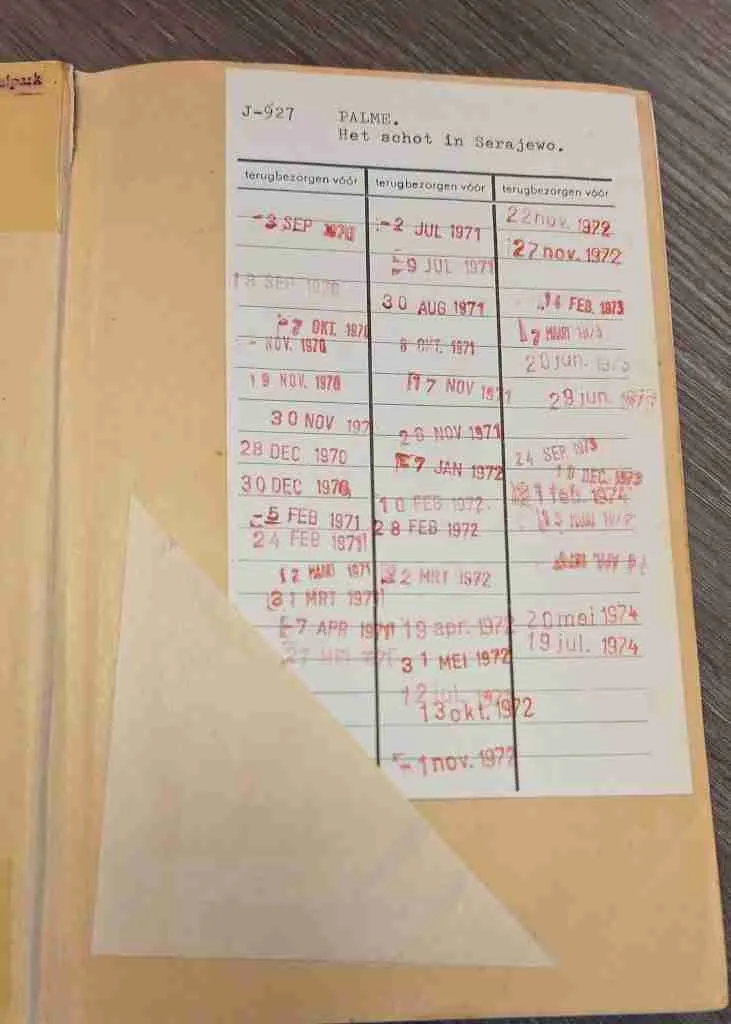 J-927 PALME.
Het schot in Serajewo.
terugbezorgen vóór
-3 SEP 1970
18 SEP 1970
-7 OKT. 1970
- NOV. 1970
19 NOV. 1970
30 NOV 197
28 DEC 1970
30 DEC 1970
-5 FEB 1971
24 FEB 1971
12 MAART 1971
31 MRT 1971
-7 APR 1971
terugbezorgen vóór
-2 JUL 1971
-9 JUL 1971
30 AUG 1971
8 OKT. 1971
17 NOV 1971
28 NOV 1971
-7 JAN 1972
10 FEB 1972
28 FEB 1972
22 MRT 1972
19 apr. 1972
31 MEI 1972
12 jul. 1972
13 okt. 1972
-1 nov. 1972
terugbezorgen vóór
22 nov. 1972
27 nov. 1972
FEB. 1973
MAART 1973
20 jun. 1973
29 jun. 1973
24 SEP. 1973
10 DEC. 1973
1 feb. 1974
20 mei 1974
19 jul. 1974